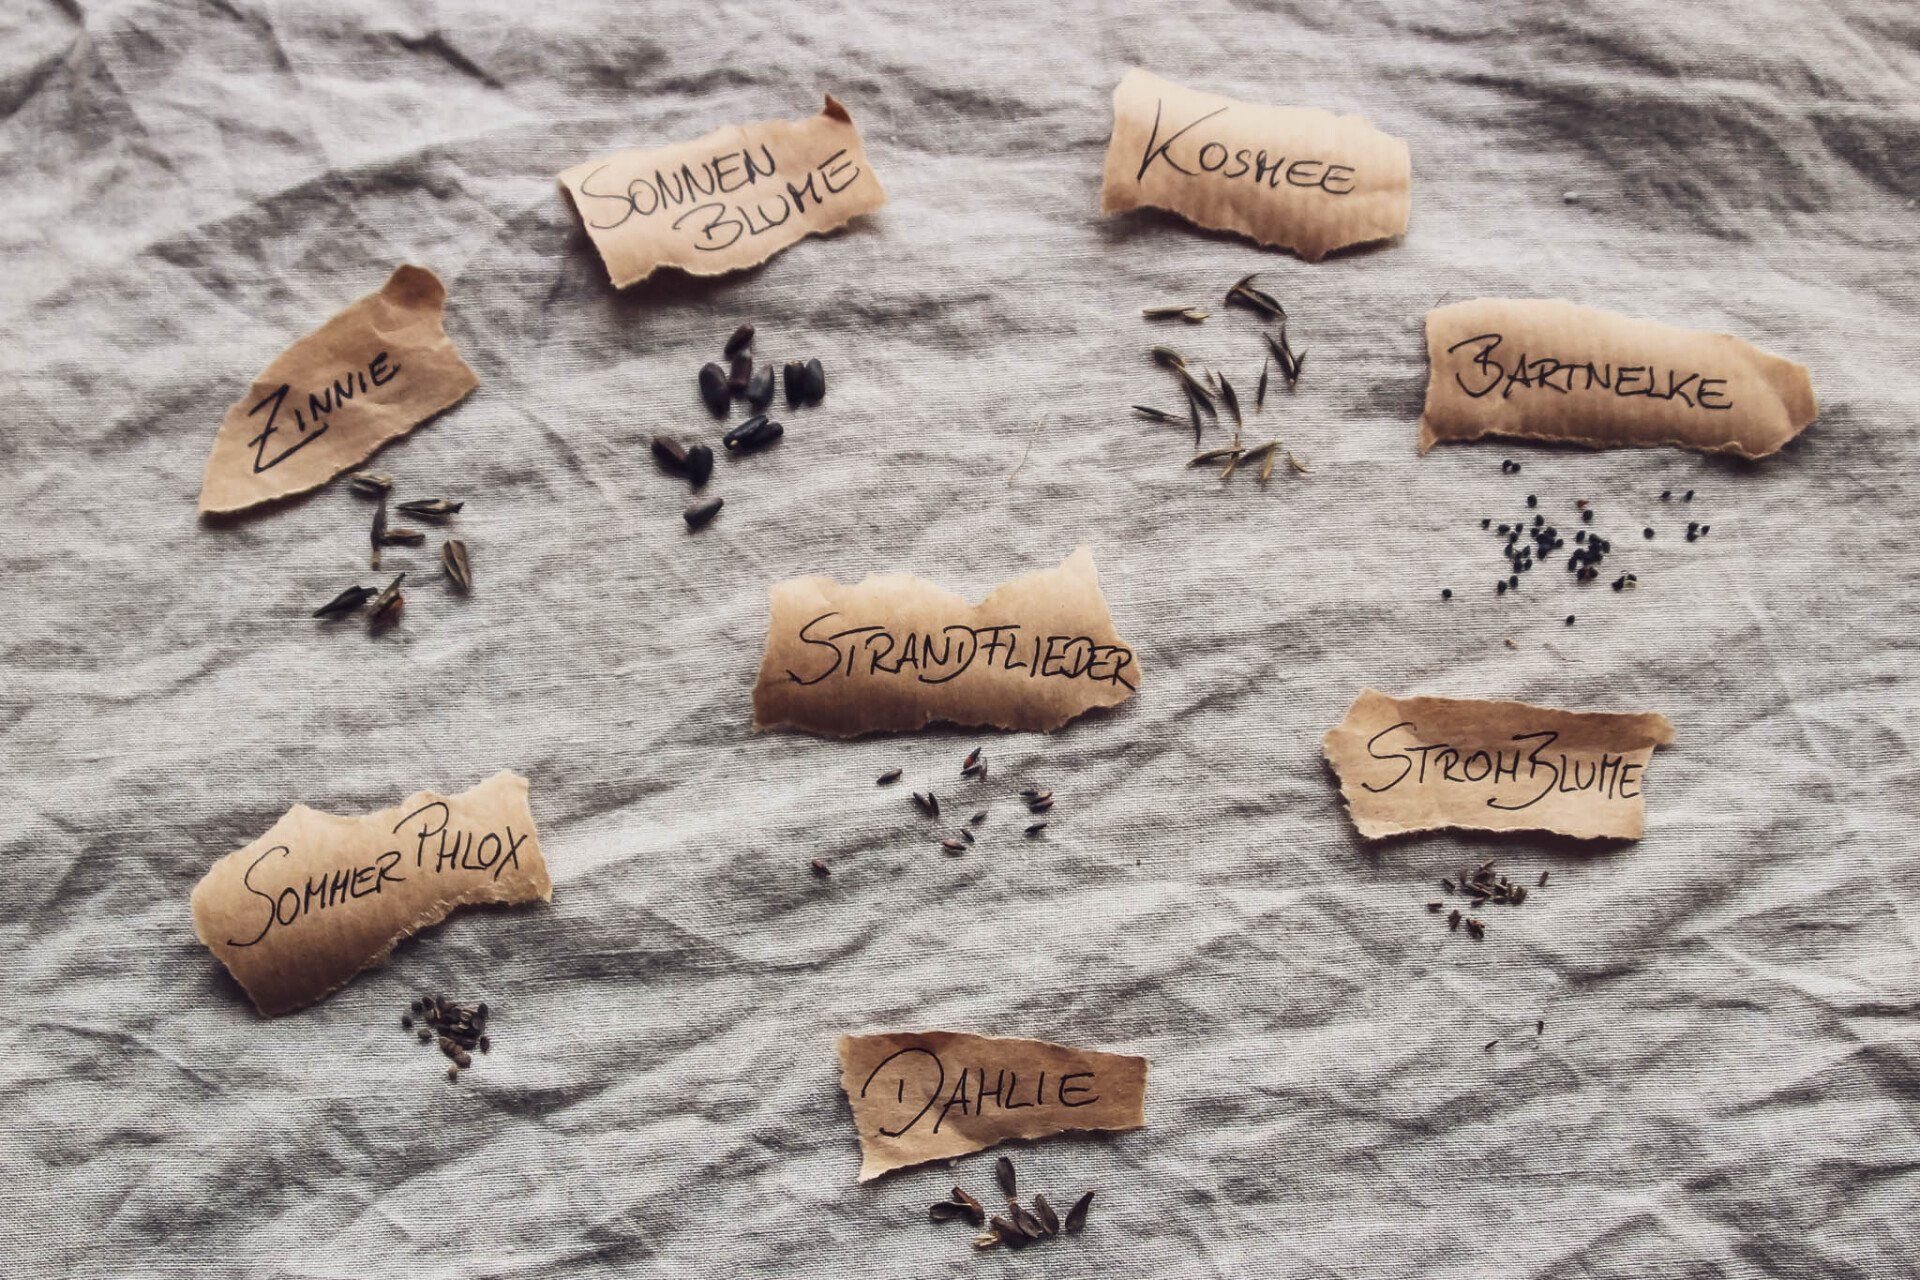 Sonnen
Blume
Kosmee
Zinnie
Bartnelke
Strandflieder
StrohBlume
Sommer Phlox
Dahlie